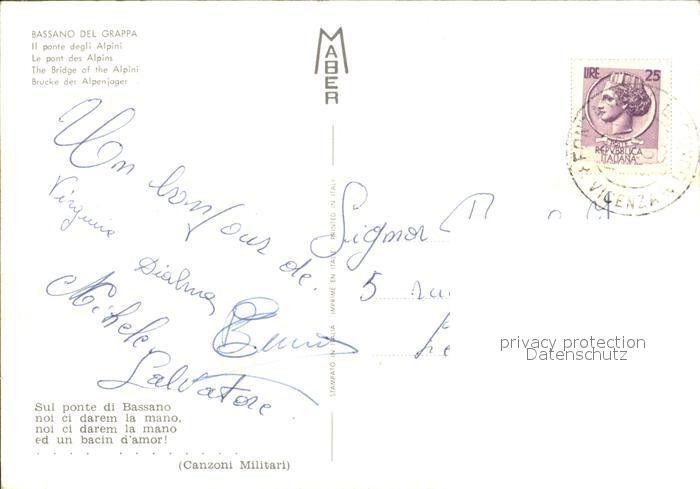 BASSANO DEL GRAPPA
Il ponte degli Alpini
Le pont des Alpins
The Bridge of the Alpini
Brucke der Alpenjager
MABER
LIRE 25
POSTE
REPVBBLICA
ITALIANA
VICENZA
Un bonjour de.
Virginie
Dialma
Michele
Salvatore
Sul ponte di Bassano
noi ci darem la mano,
noi ci darem la mano
ed un bacin d'amor!
(Canzoni Militari)
STAMPATO IN ITALIA IMPRIME EN ITALIE PRINTED IN ITALY
Signor
5 rue
privacy protection
Datenschutz